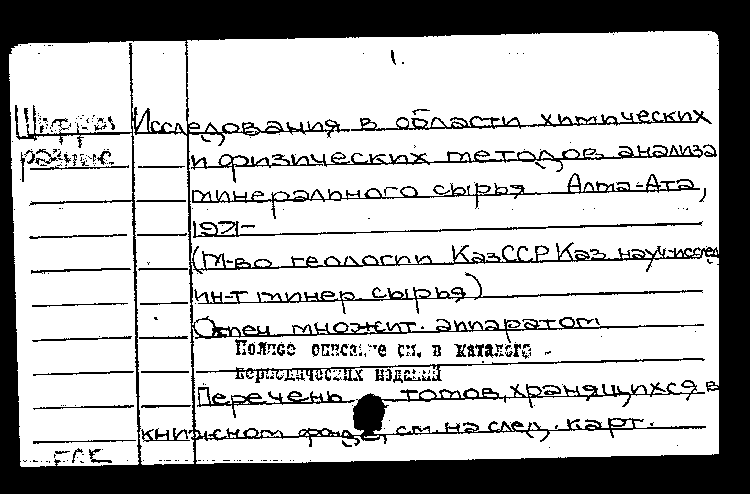 1.
Шифры Исследования в области химических
разные и физических методов анализа
минерального сырья. Алма-Ата,
1971-
(М-во геологии КазССР Каз науч-исслед
ин-т минер. сырья)
Отпеч множит. аппаратом
Полное описание см. в каталоге
периодических изданий
Перечень томов, хранящихся в
книжном фонде, см. на след. карт.